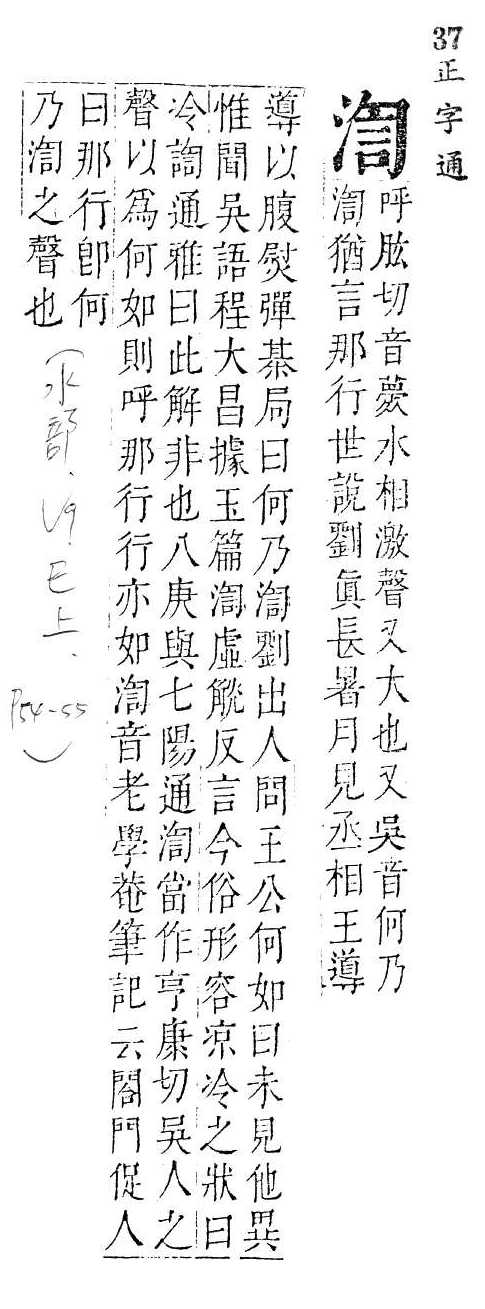 37正字通
渹
呼肱切音薨水相激聲又大也又吳音何乃
渹猶言那行世說劉眞長暑月見丞相王導
導以腹熨彈棊局曰何乃渹劉出人問王公何如曰未見他異
惟聞吳語程大昌據玉篇渹虛觥反言今俗形容凉冷之狀曰
冷渹通雅曰此解非也八庚與七陽通渹當作亨康切吳人之
聲以爲何如則呼那行行亦如渹音老學菴筆記云閤門促人
曰那行卽何
乃渹之聲也
(水部、巳上、P54-55)